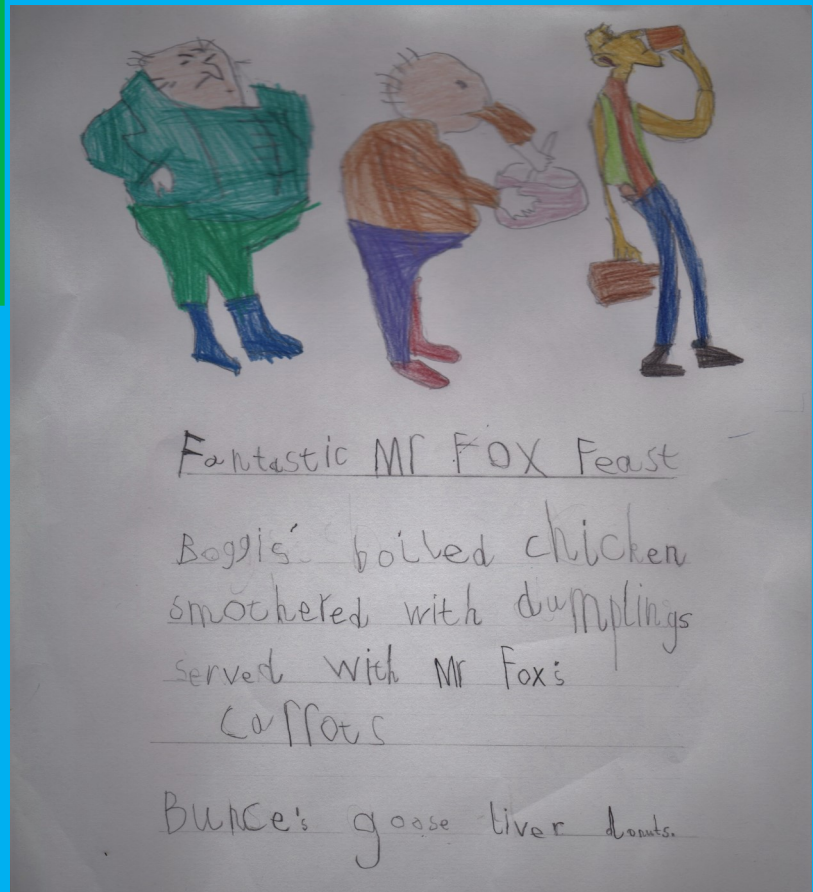 Fantastic Mr Fox Feast
Boggis' boiled chicken
smothered with dumplings
served with Mr Fox's
carrots
Bunce's goose liver donuts.